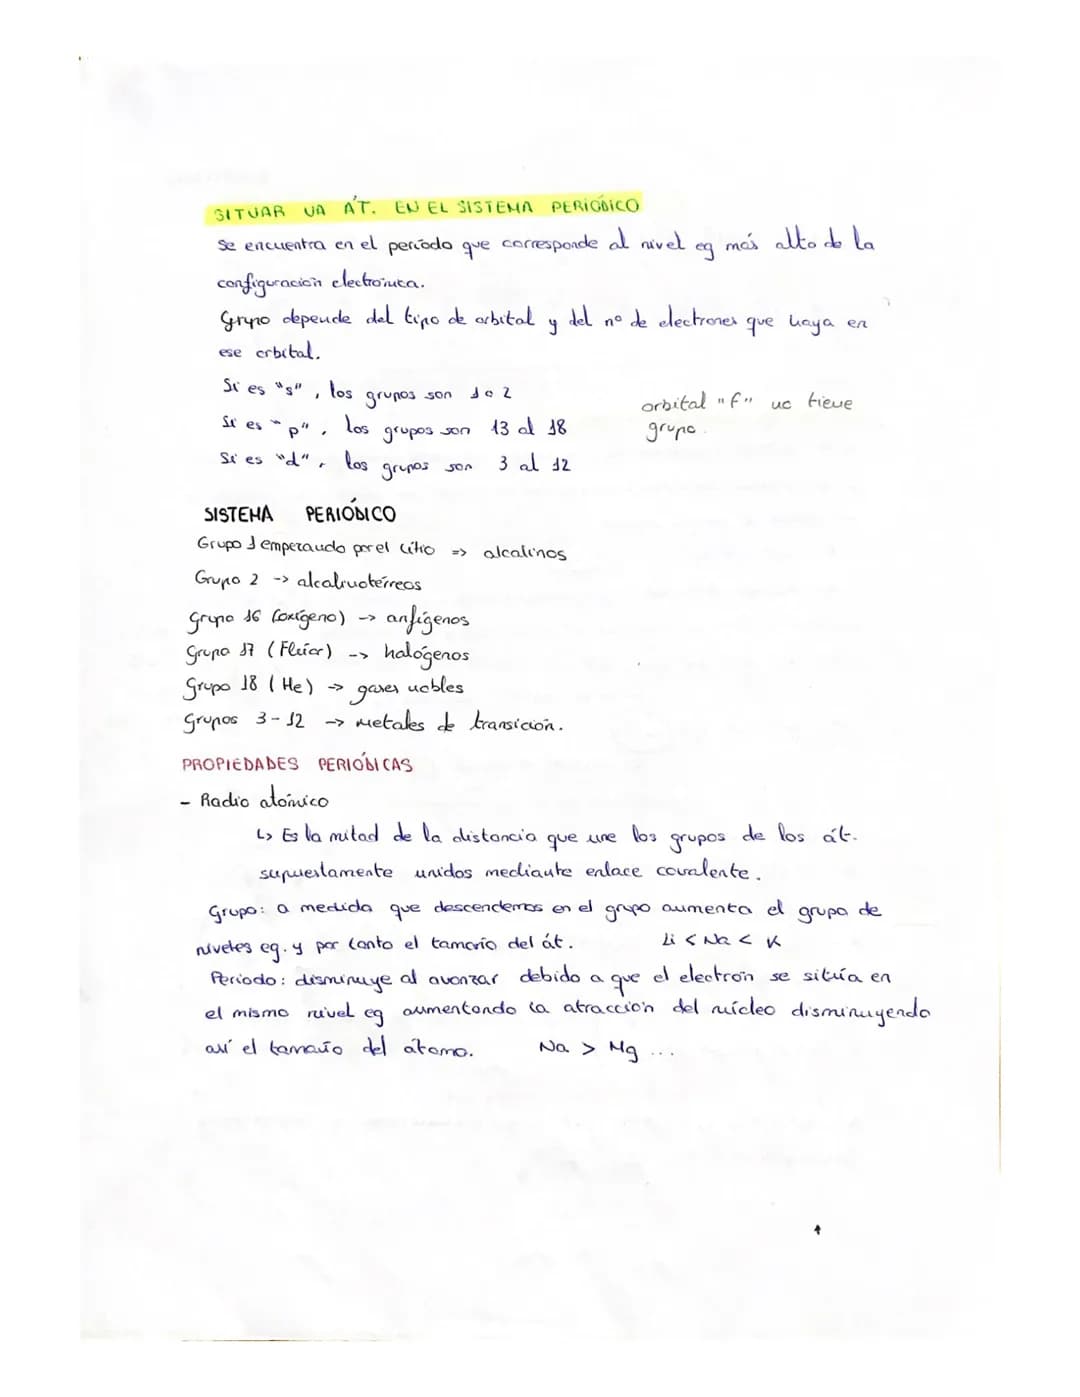 SITUAR UN ÁT. EN EL SISTEMA PERIÓDICO
Se encuentra en el período que corresponde al nivel eg más alto de la
configuración electrónica.
Grupo depende del tipo de orbital y del nº de electrones que haya en
ese orbital.
Si es "s", los grupos son 1 o 2
Si es "p", los grupos son 13 al 18
Si es "d", los grupos son 3 al 12
orbital "f" no tiene
grupo.
SISTEMA PERIÓDICO
Grupo 1 empezando por el litio => alcalinos
Grupo 2 -> alcalinotérreos
Grupo 16 (oxígeno) -> anfígenos
Grupo 17 (Flúor) -> halógenos
Grupo 18 (He) -> gases nobles
Grupos 3-12 -> metales de transición.
PROPIEDADES PERIÓDICAS
- Radio atómico
↳ Es la mitad de la distancia que une los grupos de los át.
supuestamente unidos mediante enlace covalente.
Grupo: a medida que descendemos en el grupo aumenta el grupo de
niveles eg. y por tanto el tamaño del át. Li < Na < K
Período: disminuye al avanzar debido a que el electrón se sitúa en
el mismo nivel eg aumentando la atracción del núcleo disminuyendo
así el tamaño del átomo. Na > Mg ...